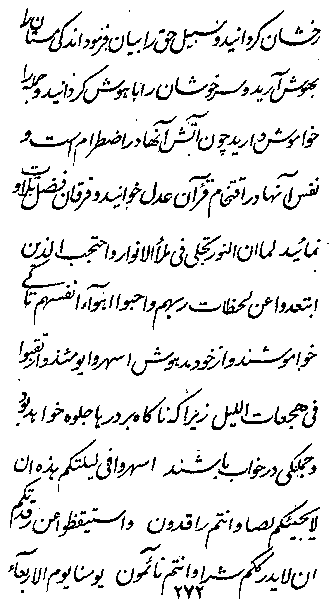 رخشان گردانید و سبیل حق را بیان فرمود اندکی مستان را
بهوش آرید و سرخوشان را باهوش گردانید و جمله را
خواموش دارید چون آتش آنها در اضطرام است و
نفس آنها در اقتحام قرآن عدل خوانید و فرقان فضل تلاوت
نمائید لما ان النور تجلی فی طرأ الانوار و احتجب الذین
ابتعدوا عن لحظات ربهم و احبوا اهوآء انفسهم تا کی
خواموشند و از خود مدهوش اسهروا یومئذ و ارتقبوا
فی هجعات اللیل زیرا که ناگاه بر دریا جلوه خواهد بود
و جملگی در خواب باشند اسهروا فی لیلتکم هذه ان
لا یجیئکم لصا و انتم راقدون و استیقظوا عن رقدتکم
ان لا یدرککم شرا و انتم نائمون یومنا یوم الاربعآء
۲۷۲